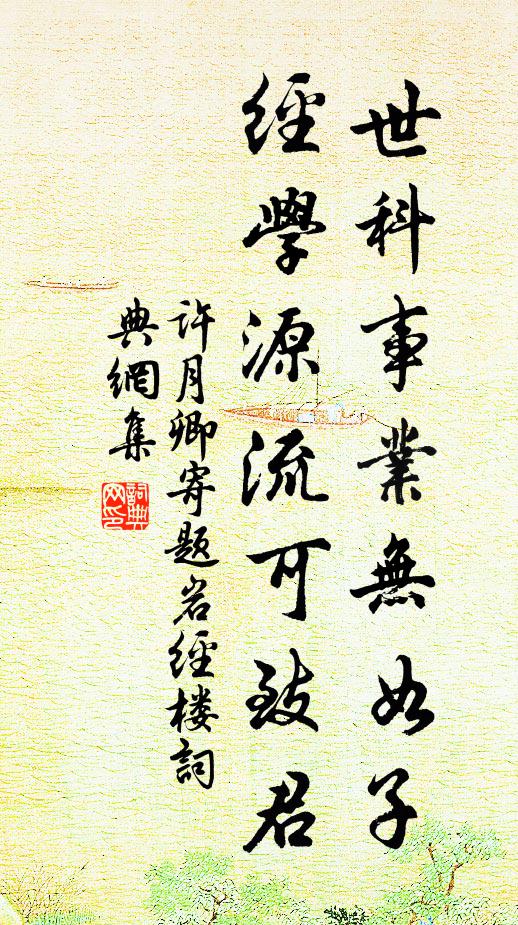 世科事業無如子
經學源流可致君
許月卿寄題岩經楼詞
典網集
詞典
网印